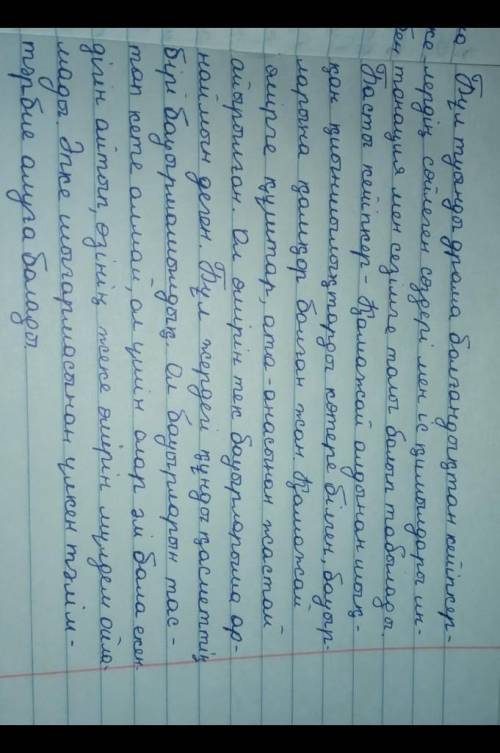 Бұл туынды драма болғандықтан кейіпкер-
лердің сөйлеген сөздері мен іс қимылдары ин-
танация мен сезімге толы болып табылады.
Басты кейіпкер - Қамажай алдынан шық-
қан қиыншылықтарды көтере білген, бауыр-
ларына қамқор болған жан. Қамажай
өмірге құштар, ата-анасынан жастай
айырылған. Ол өмірін тек бауырларыма ар-
наймын деген. Бұл жердегі құнды қасметтің
бірі бауырмашылдық. Ол бауырларын тас-
тап кете алмай, ол үшін олар әлі бала екен-
дігін айтып, өзінің жеке өмірін мүлдем ойла-
мады. Әпке шығармасынан үлкен тәлім-
тәрбие алуға болады.